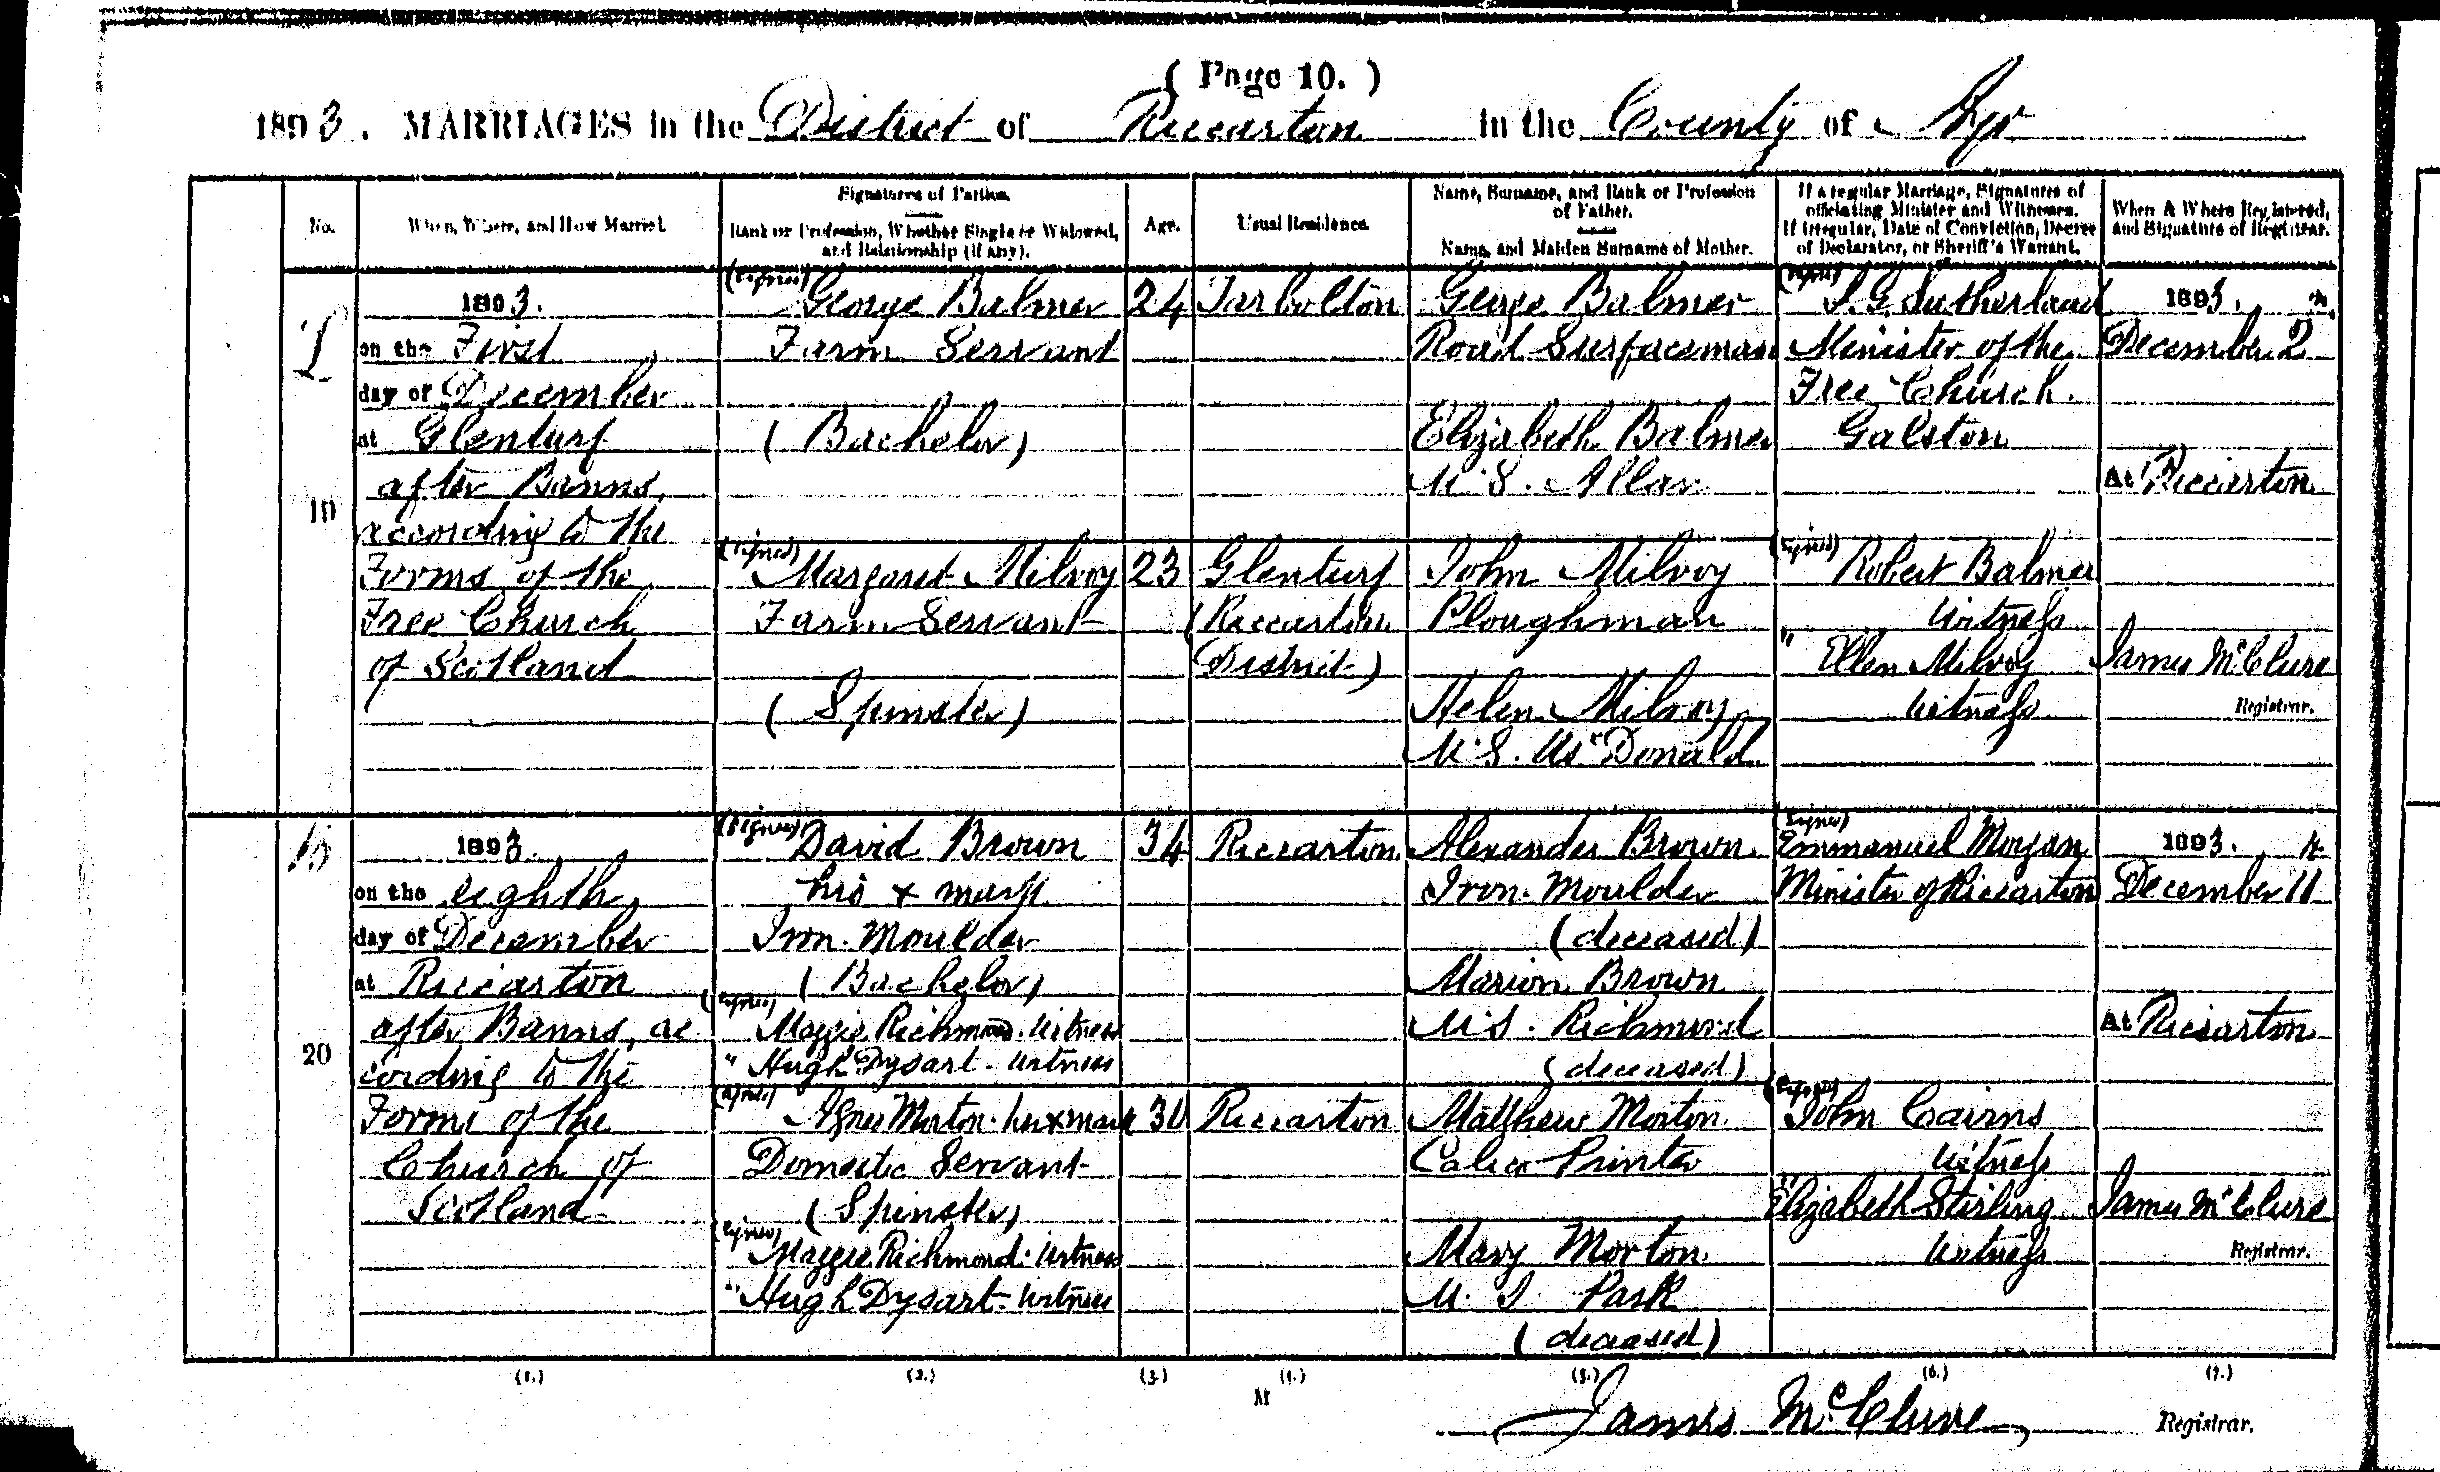 ( Page 10. )
1893. MARRIAGES in the District of Riccarton in the County of Ayr
No.
When, Where, and How Married.
Signatures of Parties.
Rank or Profession, Whether Single or Widowed,
and Relationship (if any).
Age.
Usual Residence.
Name, Surname, and Rank or Profession
of Father.
Name, and Maiden Surname of Mother.
If a regular Marriage, Signatures of
officiating Minister and Witnesses.
If Irregular, Date of Conviction, Decree
of Declarator, or Sheriff's Warrant.
When & Where Registered,
and Signature of Registrar.
19
1893.
on the First
day of December
at Glenturf
after Banns,
according to the
Forms of the
Free Church
of Scotland
(Signed)
George Balmer
Farm Servant
(Bachelor)
(Signed)
Margaret Milroy
Farm Servant
(Spinster)
24
23
Tarbolton
Glenturf
(Riccarton
District)
George Balmer
Road Surfaceman
Elizabeth Balmer
M.S. Allan
John Milroy
Ploughman
Helen Milroy
M.S. McDonald
(Signed)
J. G. Sutherland
Minister of the
Free Church
Galston
(Signed)
Robert Balmer
Witness
" Ellen Milroy
Witness
1893.
December 2
At Riccarton
James McClure
Registrar.
20
1893.
on the eighth
day of December
at Riccarton
after Banns, ac
cording to the
Forms of the
Church of
Scotland
(Signed)
David Brown
his x mark
Iron Moulder
(Bachelor)
(Signed)
Maggie Richmond. Witness
" Hugh Dysart - Witness
(Signed)
Agnes Morton. her x mark
Domestic Servant
(Spinster)
(Signed)
Maggie Richmond. Witness
" Hugh Dysart. Witness
34
30
Riccarton
Riccarton
Alexander Brown
Iron Moulder
(deceased)
Marion Brown
M.S. Richmond
(deceased)
Matthew Morton
Calico Printer
Mary Morton
M.S. Park
(deceased)
(Signed)
Emmanuel Morgan
Minister of Riccarton
(Signed)
John Cairns
Witness
" Elizabeth Stirling
Witness
1893.
December 11
At Riccarton
James McClure
Registrar.
(1.) (2.) (3.) (4.) (5.) (6.) (7.)
M
James McClure Registrar.